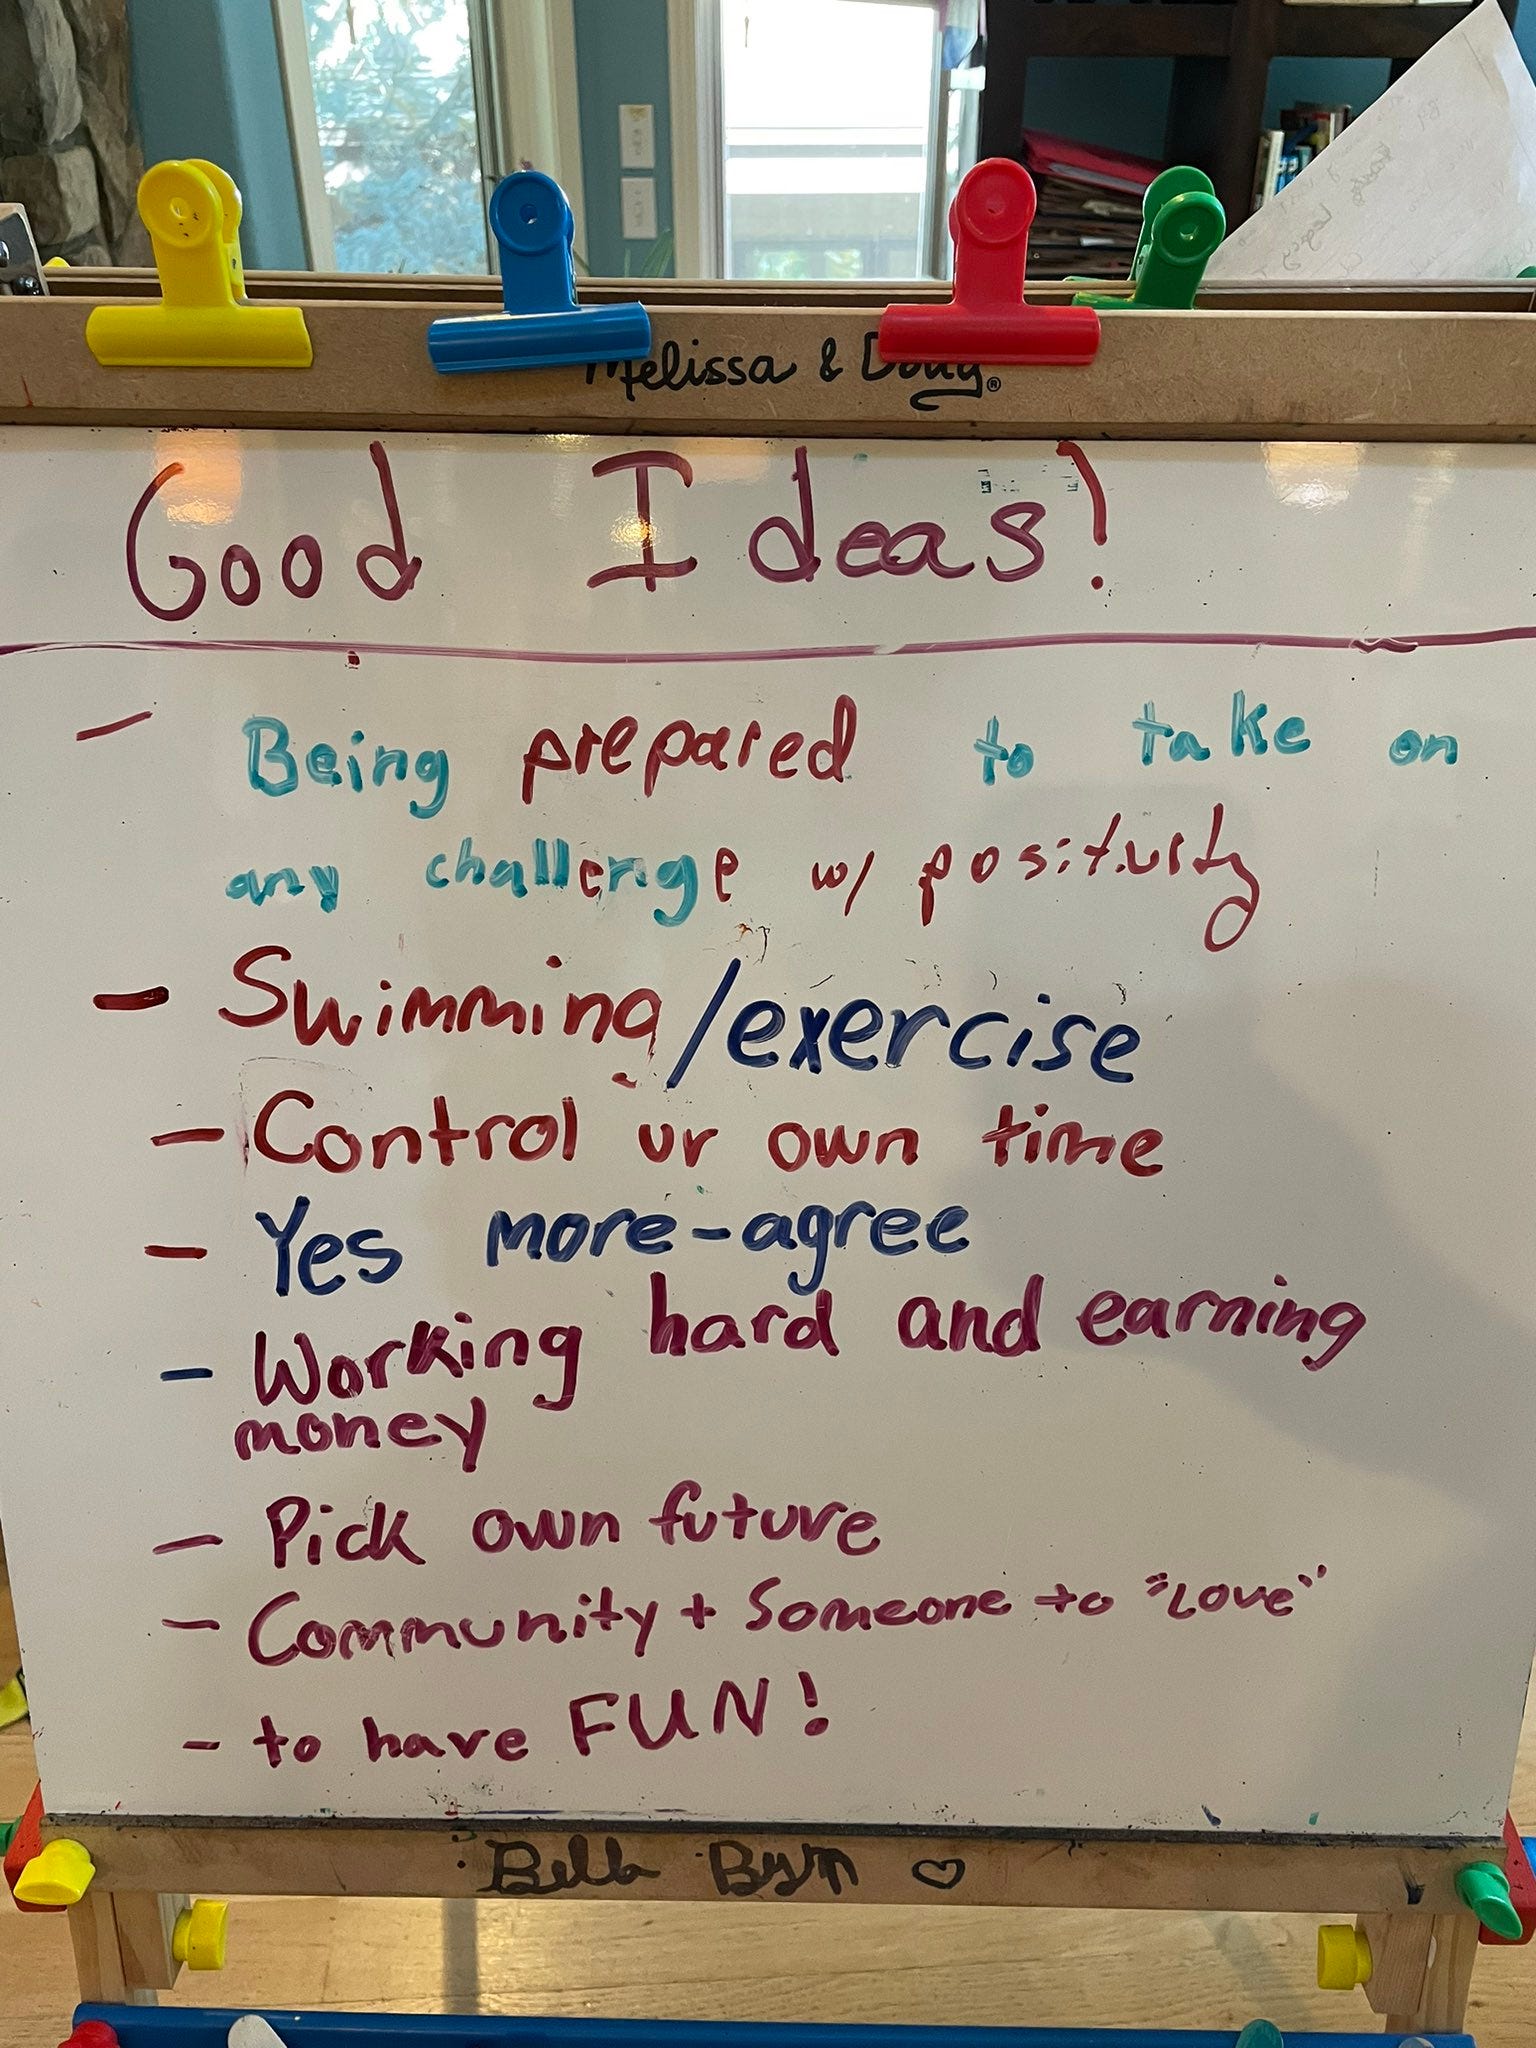 Melissa & Doug®
Good Ideas!
- Being prepared to take on
any challenge w/ positivity
- Swimming/exercise
- Control ur own time
- Yes more-agree
- Working hard and earning
money
- Pick own future
- Community + Someone to "Love"
- to have FUN!
Bella